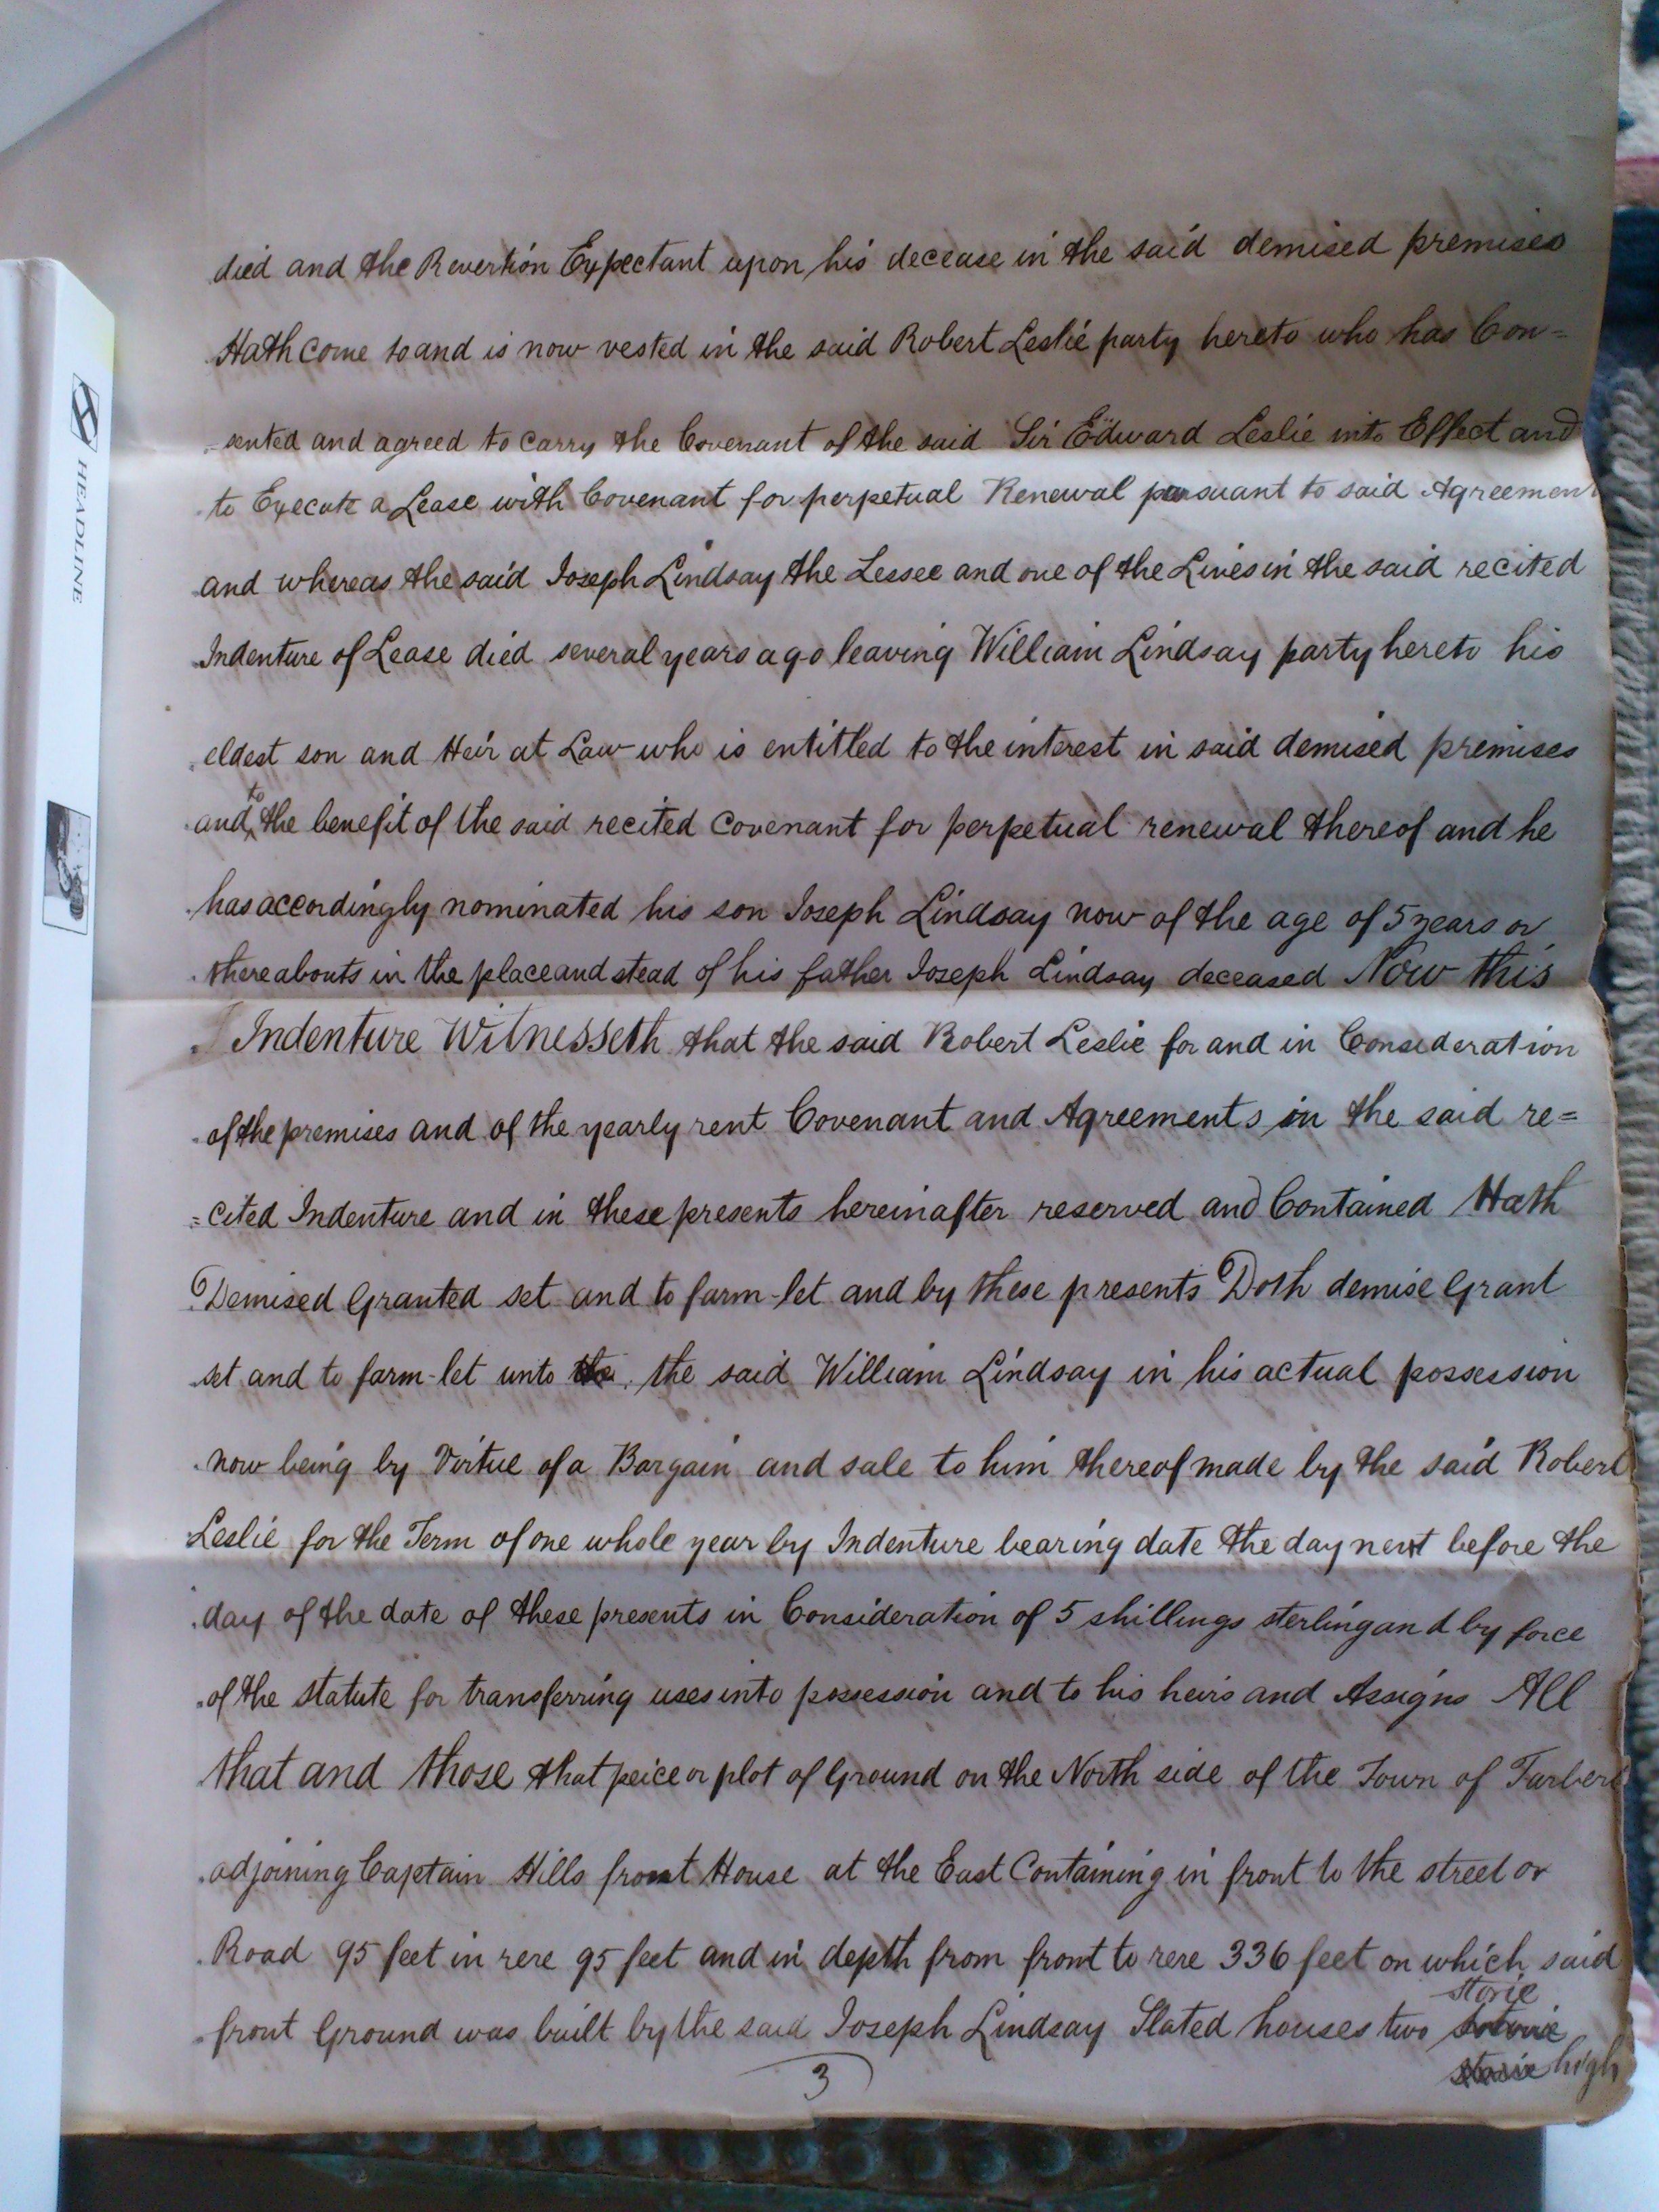 died and the Revertion Expectant upon his decease in the said demised premises
Hath come to and is now vested in the said Robert Leslie party hereto who has Con=
=sented and agreed to carry the Covenant of the said Sir Edward Leslie into Effect and
to Execute a Lease with Covenant for perpetual Renewal pursuant to said Agreement
and whereas the said Joseph Lindsay the Lessee and one of the Lives in the said recited
Indenture of Lease died several years ago leaving William Lindsay party hereto his
eldest son and Heir at Law who is entitled to the interest in said demised premises
and to the benefit of the said recited covenant for perpetual renewal thereof and he
has accordingly nominated his son Joseph Lindsay now of the age of 5 years or
thereabouts in the place and stead of his father Joseph Lindsay deceased Now this
Indenture Witnesseth that the said Robert Leslie for and in Consideration
of the premises and of the yearly rent Covenant and Agreements in the said re=
=cited Indenture and in these presents hereinafter reserved and Contained Hath
Demised Granted set and to farm-let and by these presents Doth demise Grant
set and to farm-let unto the the said William Lindsay in his actual possession
now being by Virtue of a Bargain and sale to him thereof made by the said Robert
Leslie for the Term of one whole year by Indenture bearing date the day next before the
day of the date of these presents in Consideration of 5 shillings sterling and by force
of the statute for transferring uses into possession and to his heirs and Assigns All
that and those that peice or plot of Ground on the North side of the Town of Tarbert
adjoining Captain Hills front House at the East Containing in front to the street or
Road 95 feet in rere 95 feet and in depth from front to rere 336 feet on which said
front Ground was built by the said Joseph Lindsay Slated houses two storie
high
3
HEADLINE